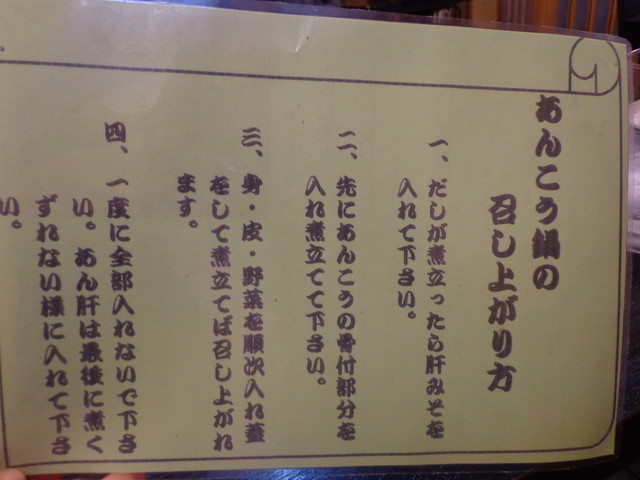 あんこう鍋の
召し上がり方
一、だしが煮立ったら肝みそを
入れて下さい。
二、先にあんこうの骨付部分を
入れ煮立てて下さい。
三、身・皮・野菜を順次入れ蓋
をして煮立てば召し上がれ
ます。
四、一度に全部入れないで下さ
い。あん肝は最後に煮く
ずれない様に入れて下さ
い。